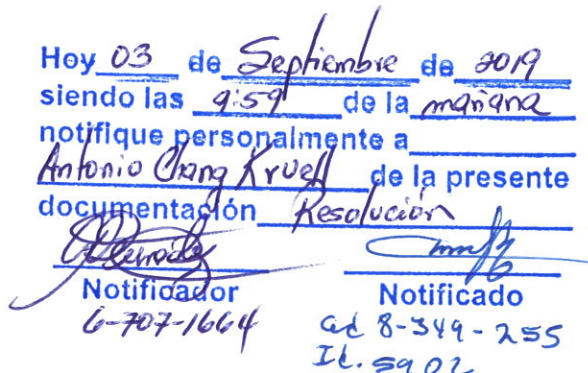 Hoy 03 de Septiembre de 2019
siendo las 9:59 de la mañana
notifique personalmente a
Antonio Chang Kruell de la presente
documentación Resolución
Notificador Notificado
6-707-1664 ced 8-349-255
Id. 5902